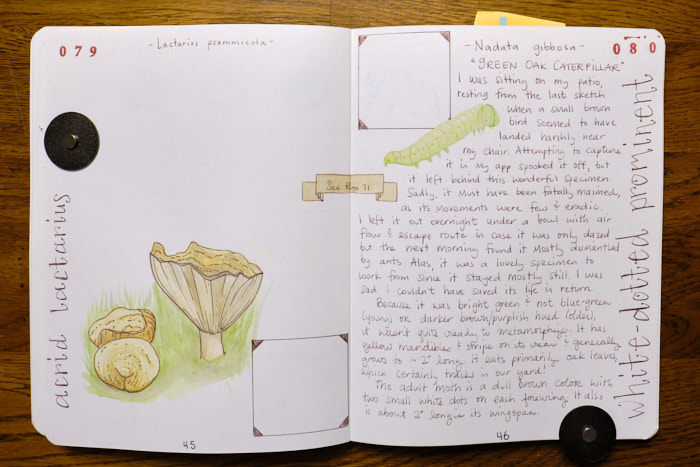 079
- Lactarius psammicola -
acrid lactarius
See Page 31
45
080
- Nadata gibbosa -
"GREEN OAK CATERPILLAR"
I was sitting on my patio,
resting from the last sketch
when a small brown
bird seemed to have
landed harshly near
my chair. Attempting to capture
it in my app spooked it off, but
it left behind this wonderful specimen.
Sadly, it must have been fatally maimed,
as its movements were few & eradic.
I left it out overnight under a bowl with air
flow & escape route in case it was only dazed
but the next morning found it mostly dismantled
by ants. Alas, it was a lovely specimen to
work from since it stayed mostly still. I was
sad I couldn't have saved its life in return.
Because it was bright green & not blue-green
(young) or darker brown/purplish hued (older),
it wasn't quite ready to metamorphize. It has
yellow mandibles & stripe on its rear & generally
grows to ~ 2" long. It eats primarily oak leaves,
which certainly tracks in our yard!
The adult moth is a dull brown color with
two small white dots on each forewing. It also
is about 2" long in its wingspan.
white-dotted prominent
46